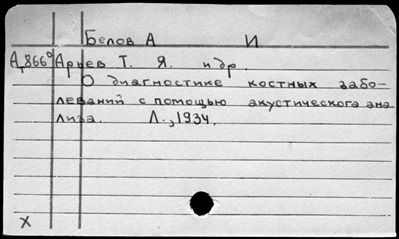 Белов А И
А,866° Арьев Т. Я. и др.
О диагностике костных забо-
леваний с помощью акустического ана
лиза. Л., 1934.
X